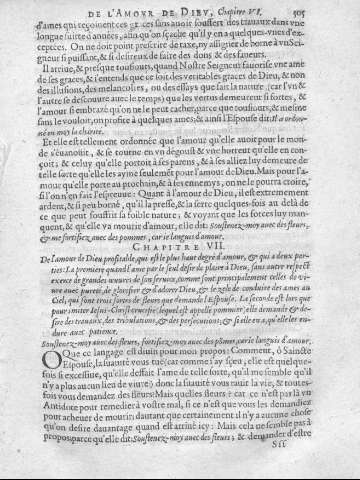 DE L'AMOVR DE DIEV, Chapitre VI. 505
d'ames qui reçoiuent ces graces sans auoir souffert des trauaux dans vne
longue suitte d'années, afin qu'on sçache qu'il y en a quelques-vnes d'ex-
ceptées. On ne doit point prescrire de taxe, ny assigner de borne à vn Sei-
gneur si puissant, & si desireux de faire des dons & des faueurs.
Il arriue, & presque tousiours, quand Nostre Seigneur fauorise vne ame
de ses graces, & i'entends que ce soit des veritables graces de Dieu, & non
des illusions, des melancolies, ou des essays que fait la nature (car l'vn &
l'autre se descouure auec le temps) que les vertus demeurent si fortes, &
l'amour si embrasé qu'on ne le peut cacher, parce que tousiours, & mesme
sans le vouloir, on profite à quelques ames; & ainsi l'Espouse dit: Il a ordon-
né en moy la charité.
Et elle est tellement ordonnée que l'amour qu'elle auoit pour le monde
s'éuanoüit, & se tourne en vn dégoust & vne horreur qu'elle en con-
çoit; & celuy qu'elle portoit à ses parens, & à ses alliez luy demeure de
telle sorte qu'elle les ayme seulement pour l'amour de Dieu. Mais pour l'a-
mour qu'elle porte au prochain, & à ses ennemys, on ne le pourra croire,
si l'on n'en fait l'espreuue: Quant à l'amour de Dieu, il est extremement
ardent, & si peu borné, qu'il la presse, & la serre quelques-fois au delà de
ce que peut souffrir sa foible nature; & voyant que les forces luy man-
quent, & qu'elle va mourir d'amour, elle dit: Soustenez-moy auec des fleurs,
& me fortifiez auec des pommes, car ie languis d'amour.
CHAPITRE VII.
De l'amour de Dieu profitable, qui est le plus haut degré d'amour, & qui a deux par-
ties: La premiere quand l'ame par le seul desir de plaire à Dieu, sans autre respect
exerce de grandes œuures de son seruice, comme sont principalement celles de vi-
ure auec pureté, de glorifier & d'adorer Dieu, & le zele de conduire des ames au
Ciel, qui sont trois sortes de fleurs que demande l'Espouse. La seconde est lors que
pour imiter Iesus-Christ crucifié, lequel est appellé pommier, elle demande & de-
sire des trauaux, des tribulations, & des persecutions; & si elle en a, qu'elle les en-
dure auec patience.
Soustenez-moy auec des fleurs, fortifiez-moy auec des pômes, car ie languis d'amour.
O Que ce langage est diuin pour mon propos! Comment, ô Saincte
Espouse, la suauité vous tuë? car comme i'ay sçeu, elle est quelque-
fois si excessiue, qu'elle deffait l'ame de telle sorte, qu'il me semble qu'il
n'y a plus aucun lieu de viure) donc la suauité vous rauit la vie, & toutes-
fois vous demandez des fleurs: Mais quelles fleurs? car ce n'est pas là vn
Antidote pour remedier à vostre mal, si ce n'est que vous les demandiez
pour acheuer de mourir; dautant que certainement il n'y a aucune chose
qu'on desire dauantage quand est arriué icy: Mais cela ne semble pas à
propos, parce qu'elle dit: Soustenez-moy auec des fleurs; & demander d'estre
Sss